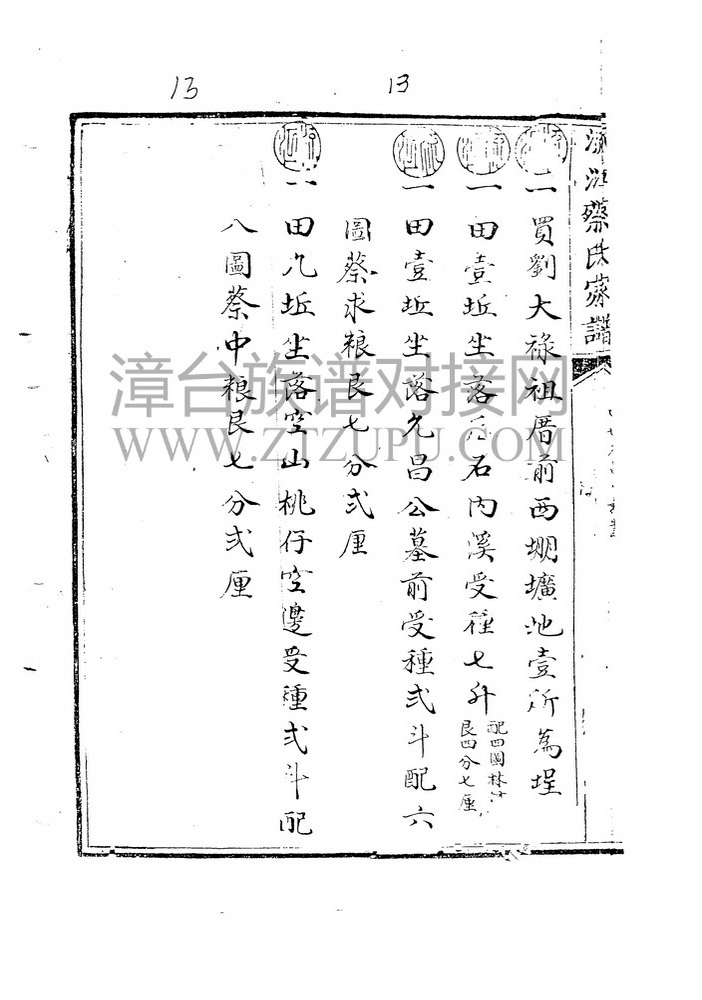 13
13
蔡氏家譜
一 買劉大祿祖厝前西堋壙池壹所為埕
一 田壹坵坐落 石內溪受種七升 配四圖林
艮四分七厘
一 田壹坵坐落允昌公墓前受種弍斗配六
圖蔡求粮艮七分弍厘
一 田九坵坐落空山桃仔空邊受種弍斗配
八圖蔡中粮艮七分弍厘
漳台族谱对接网
WWW.ZTZUPU.COM